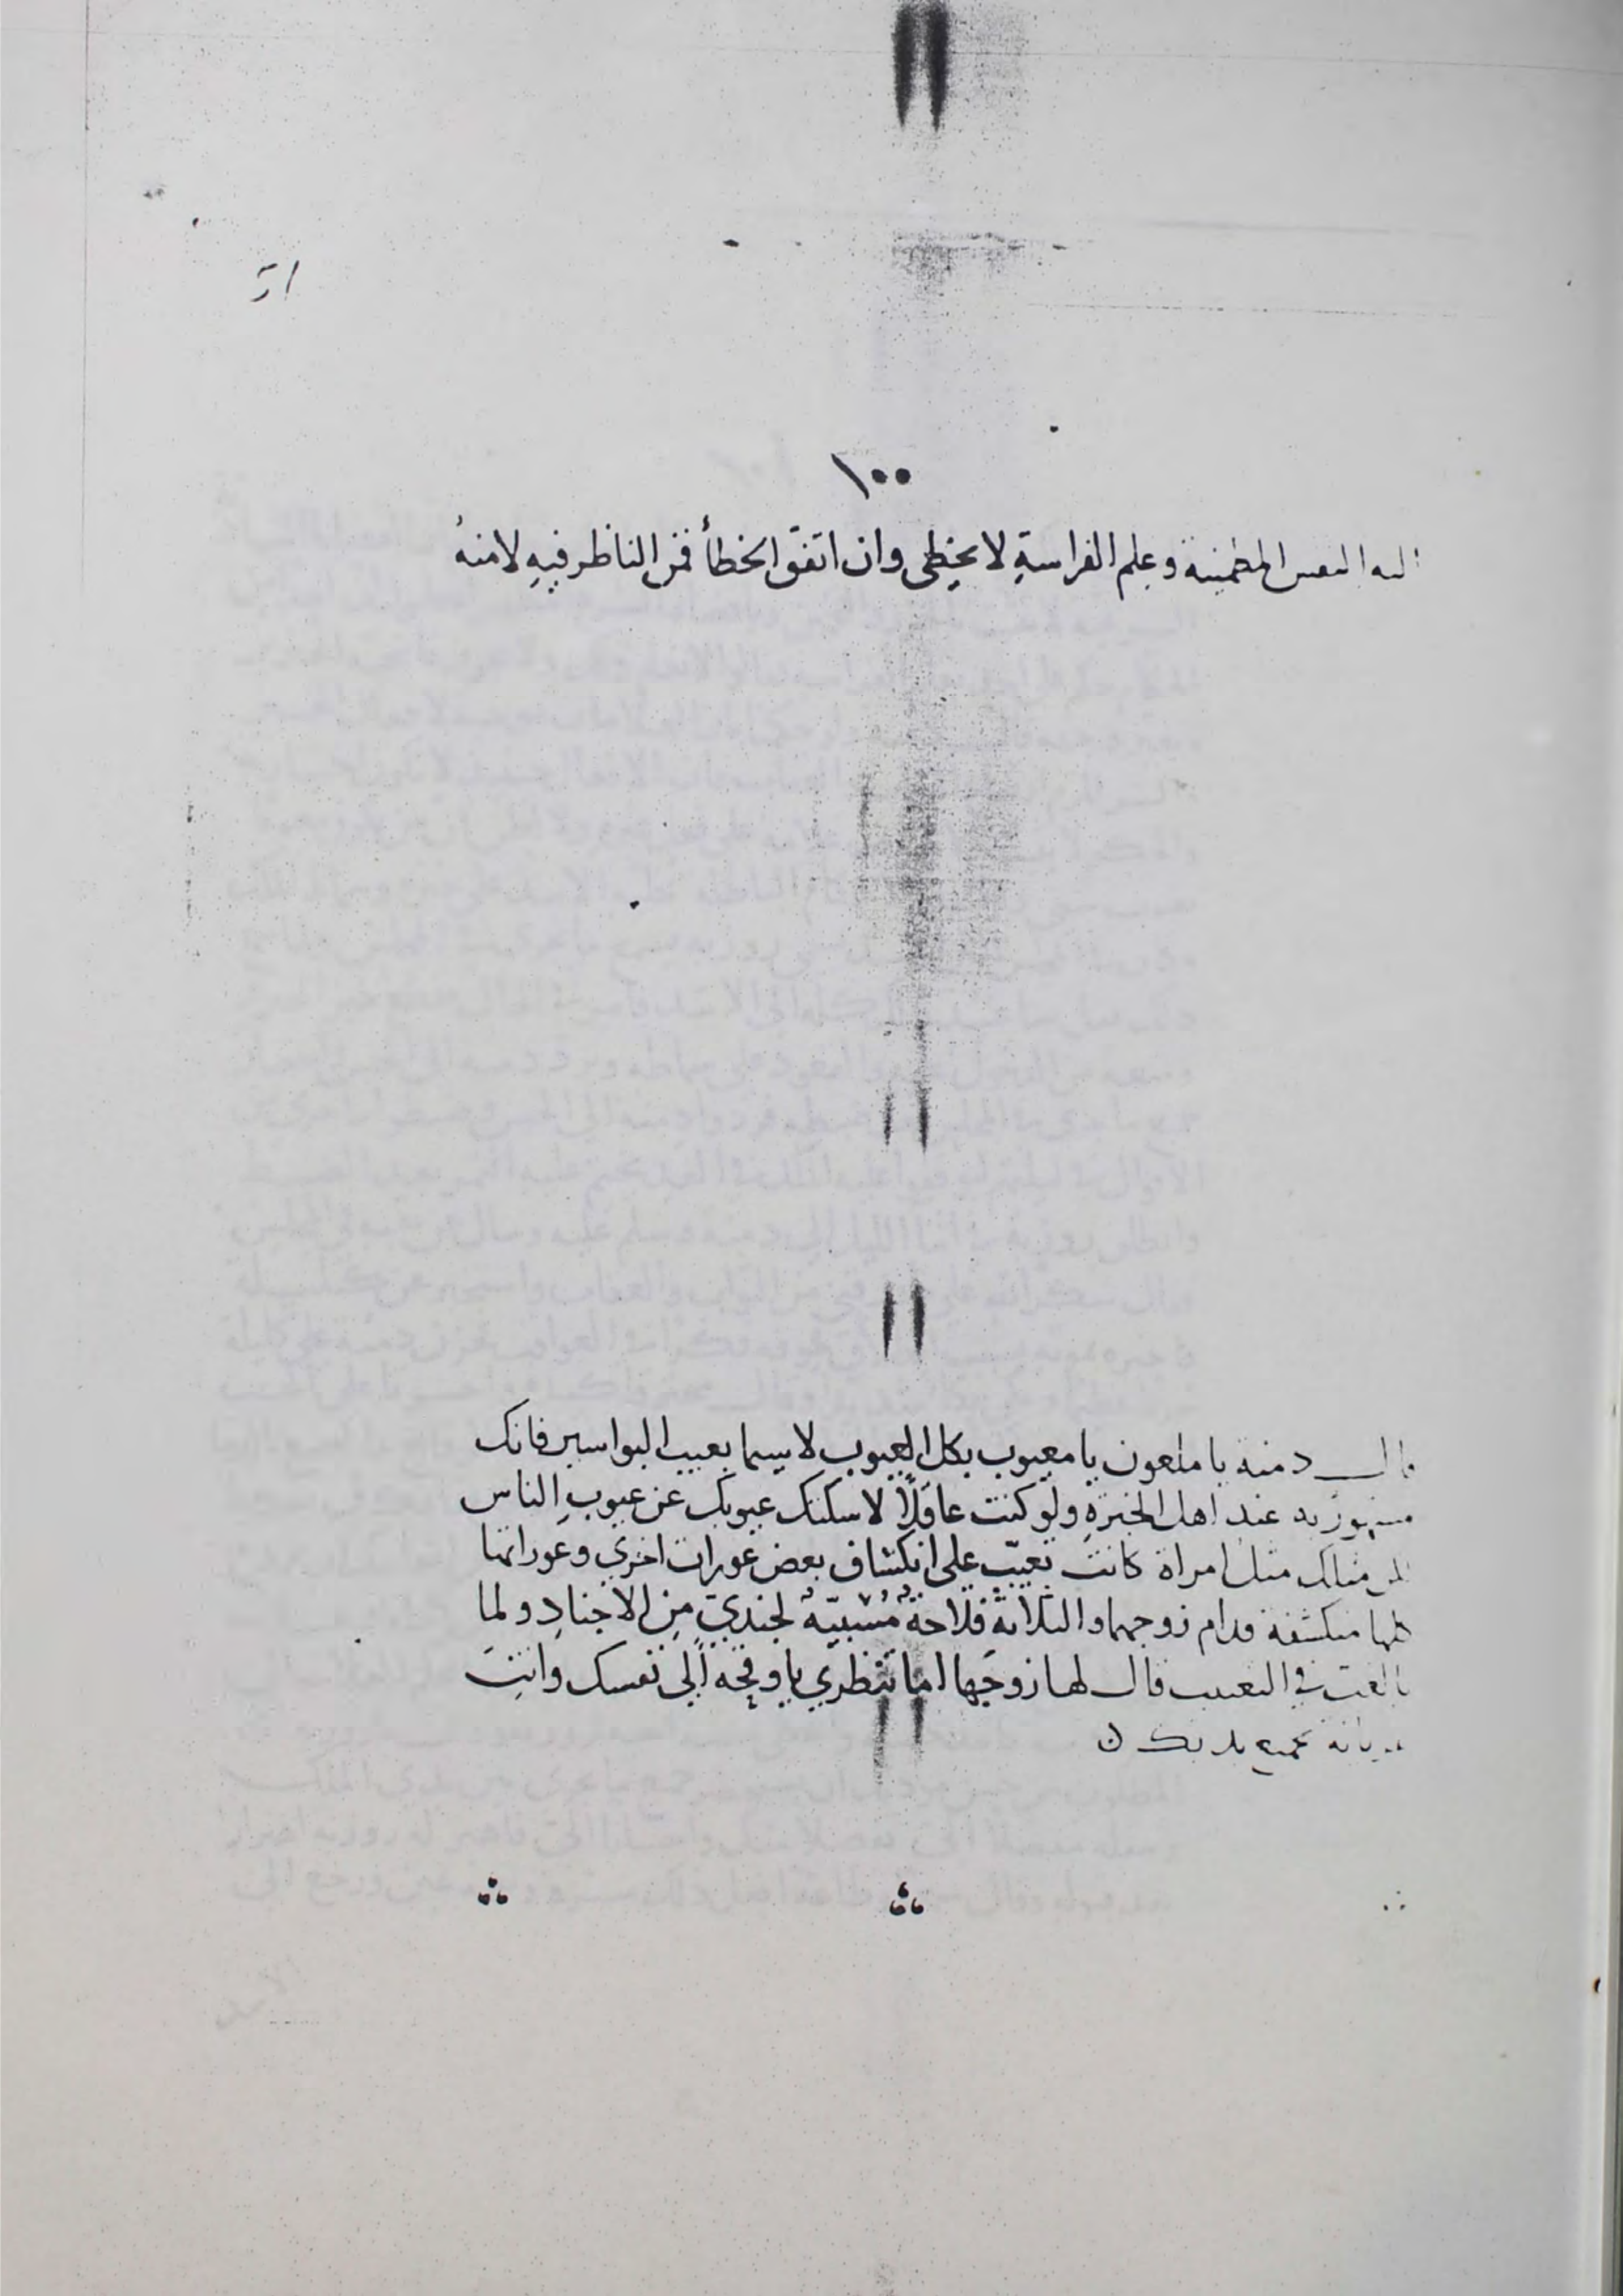 ١٠٠
اليه النفس المطمينة وعلم الفراسةِ لا يخطى وان اتفق الخطأ فمن الناظر فيهِ لا منهُ
قال دمنه يا ملعون يا معيوب بكل العيوب لا سيما بعيب البواسير فانك
مشهور به عند اهل الخبرةِ ولو كنت عاقلاً لاسكتك عيوبك عن عيوبِ الناس
لكن مثلك مثل امراة كانت تعيّب على انكشاف بعض عورات اخري وعوراتها
كلها منكشفة قدام زوجهما والثلاثة فلاحةٌ مُسْبيّةٌ لجنديّ مِن الاجنادِ ولما
بالغت في التعييب قال لها زوجَها اما تنظري يا وقحه الي نفسك وانتِ
عريانة بجميع بدنك